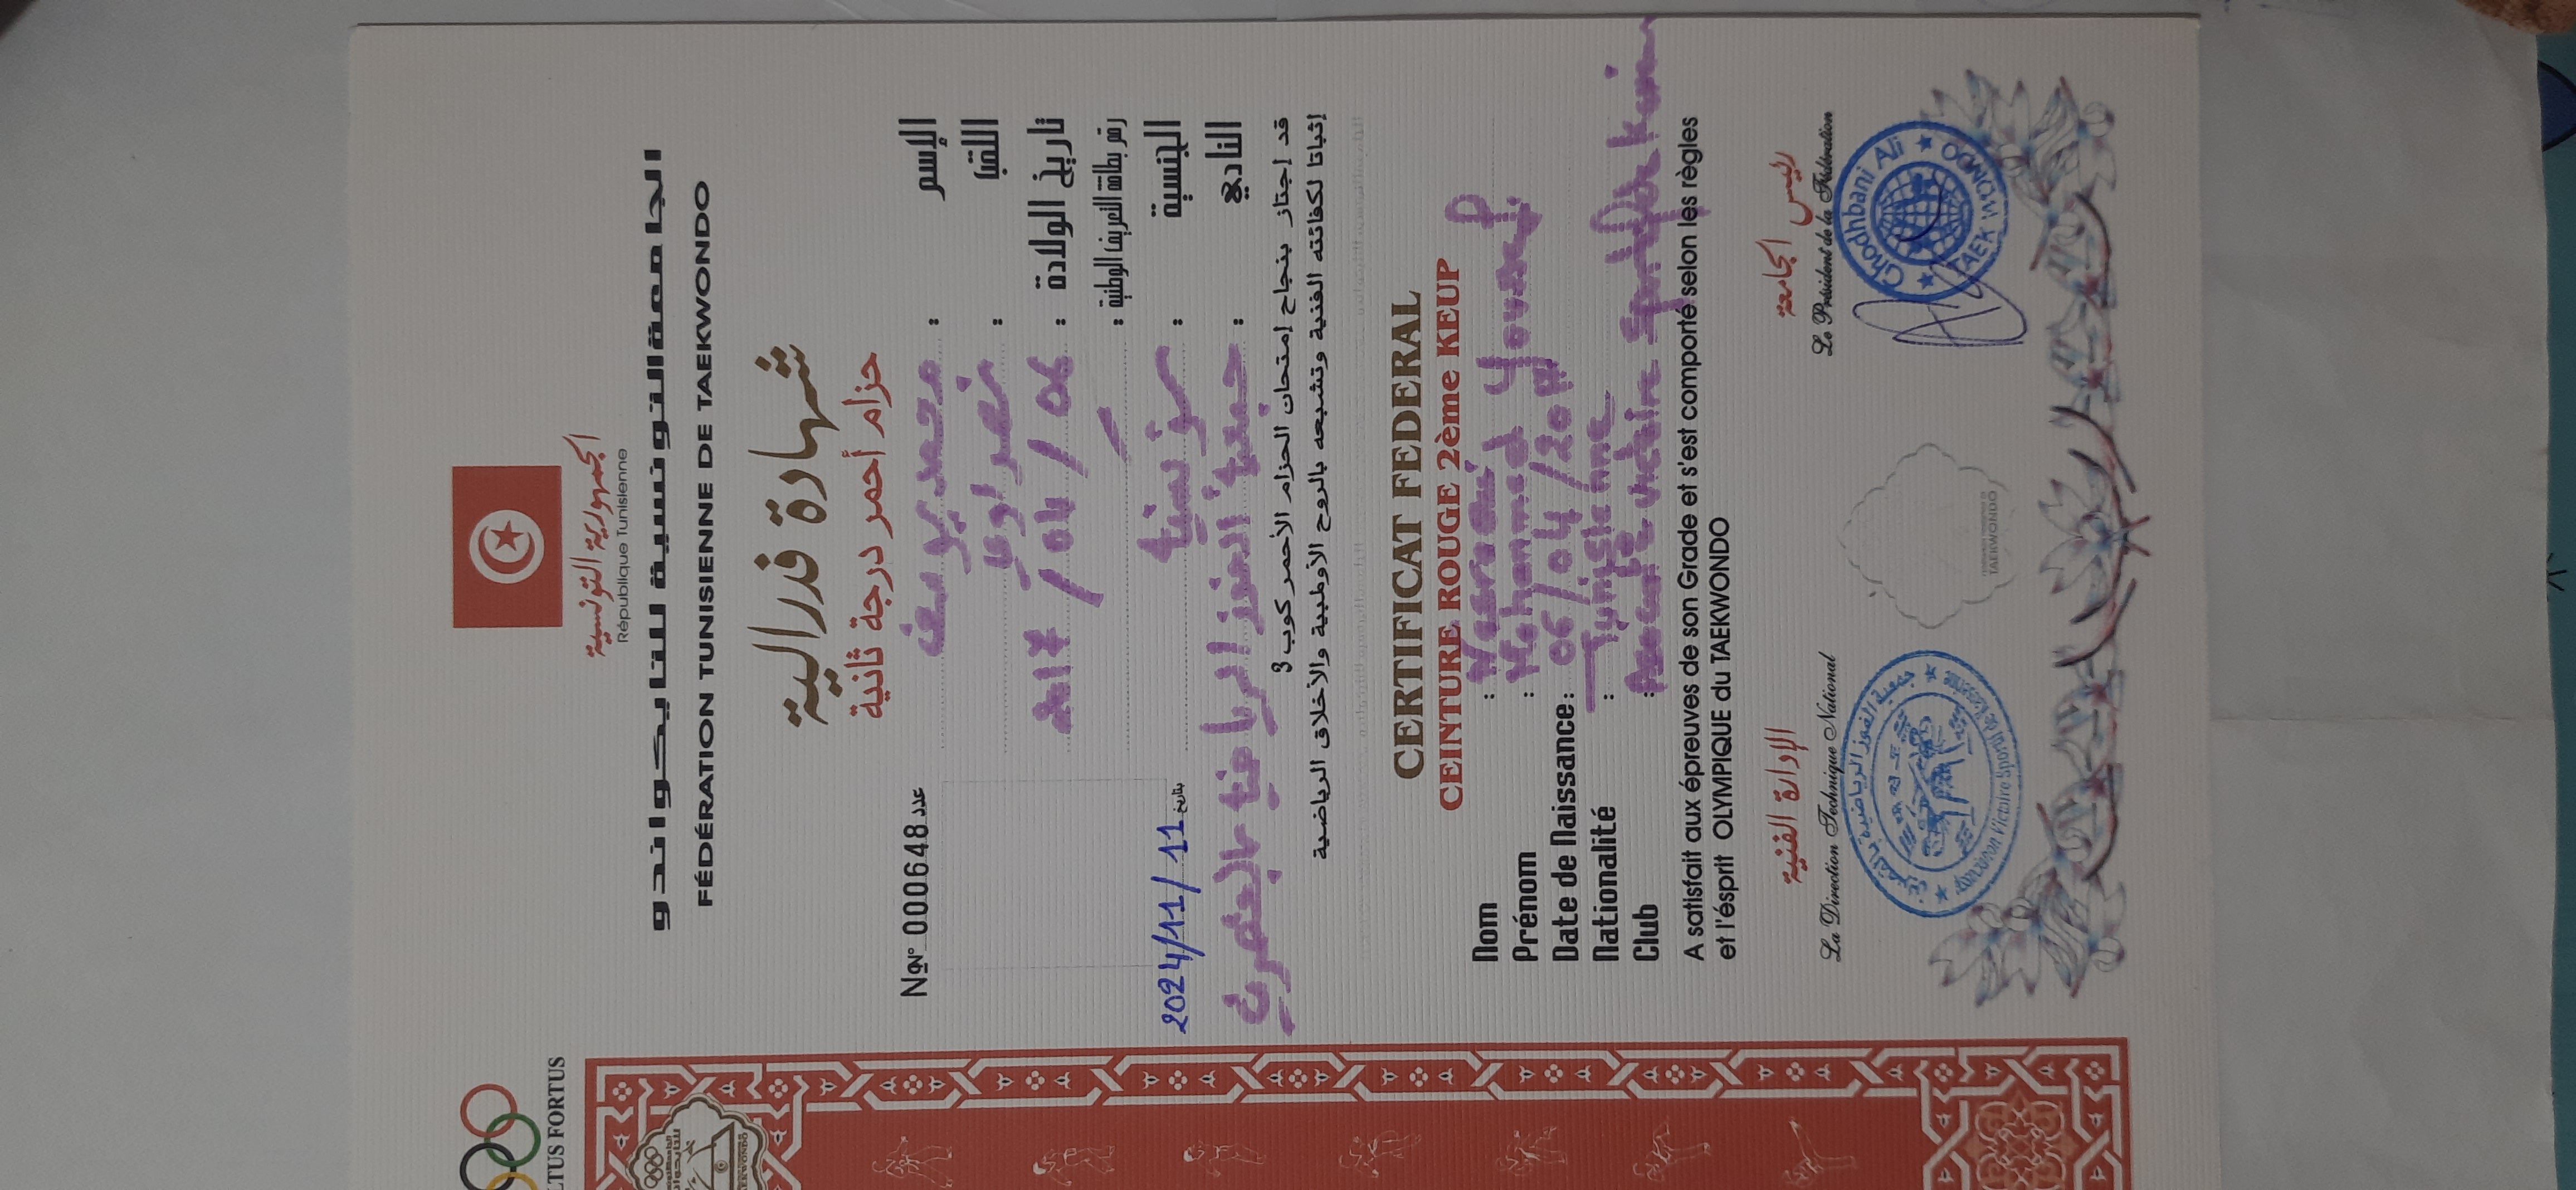 الجمهورية التونسية
République Tunisienne
الجامعة التونسية للتايكواندو
FÉDÉRATION TUNISIENNE DE TAEKWONDO
LTUS FORTUS
شهادة فدرالية
حزام أحمر درجة ثانية
N° 000648 عدد
الإسم : محمد يوسف
اللقب : نصراوي
تاريخ الولادة : 06 / 04 /
رقم بطاقة التعريف الوطنية : /
الجنسية : تونسية
بتاريخ 2024/11/11
النادي : جمعية الفوز الرياضية بالعمران
قد إجتاز بنجاح إمتحان الحزام الأحمر كوب 3
إثباتا لكفائته الفنية وتشبعه بالروح الأولمبية والأخلاق الرياضية
CERTIFICAT FEDERAL
CEINTURE ROUGE 2ème KEUP
Nom : Nasraoui
Prénom : Mohammed Youssef
Date de Naissance : 06/04/201
Nationalité : Tunisienne
Club :
A satisfait aux épreuves de son Grade et s'est comporté selon les règles
et l'ésprit OLYMPIQUE du TAEKWONDO
الإدارة الفنية
La Direction Technique National
رئيس الجامعة
Le Président de la Fédération
Ghodhbani Ali
TAEK WON DO
TAEKWONDO